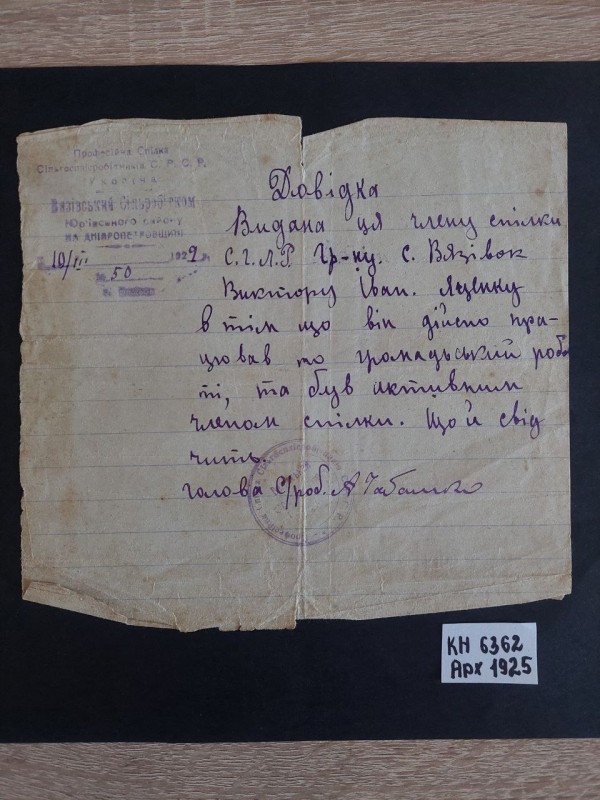 Професійна Спілка
Сільгоспробітників С. Р. С. Р.
Україна
Вязівський Сільробітком
Юр'ївського району
НА ДНІПРОПЕТРОВЩИНІ
10/III 1929
№ 50
Довідка
Видана ця члену спілки
С.Г.Л.Р. Гр-ну. с. Вязівок
Виктору Іван. Яценку
в тім що він дійсно пра-
цював по громадьський робо
ті, та був активним
членом спілки. Що й свід
чить.
голова С/роб. А
КН 6362
Арх 1925